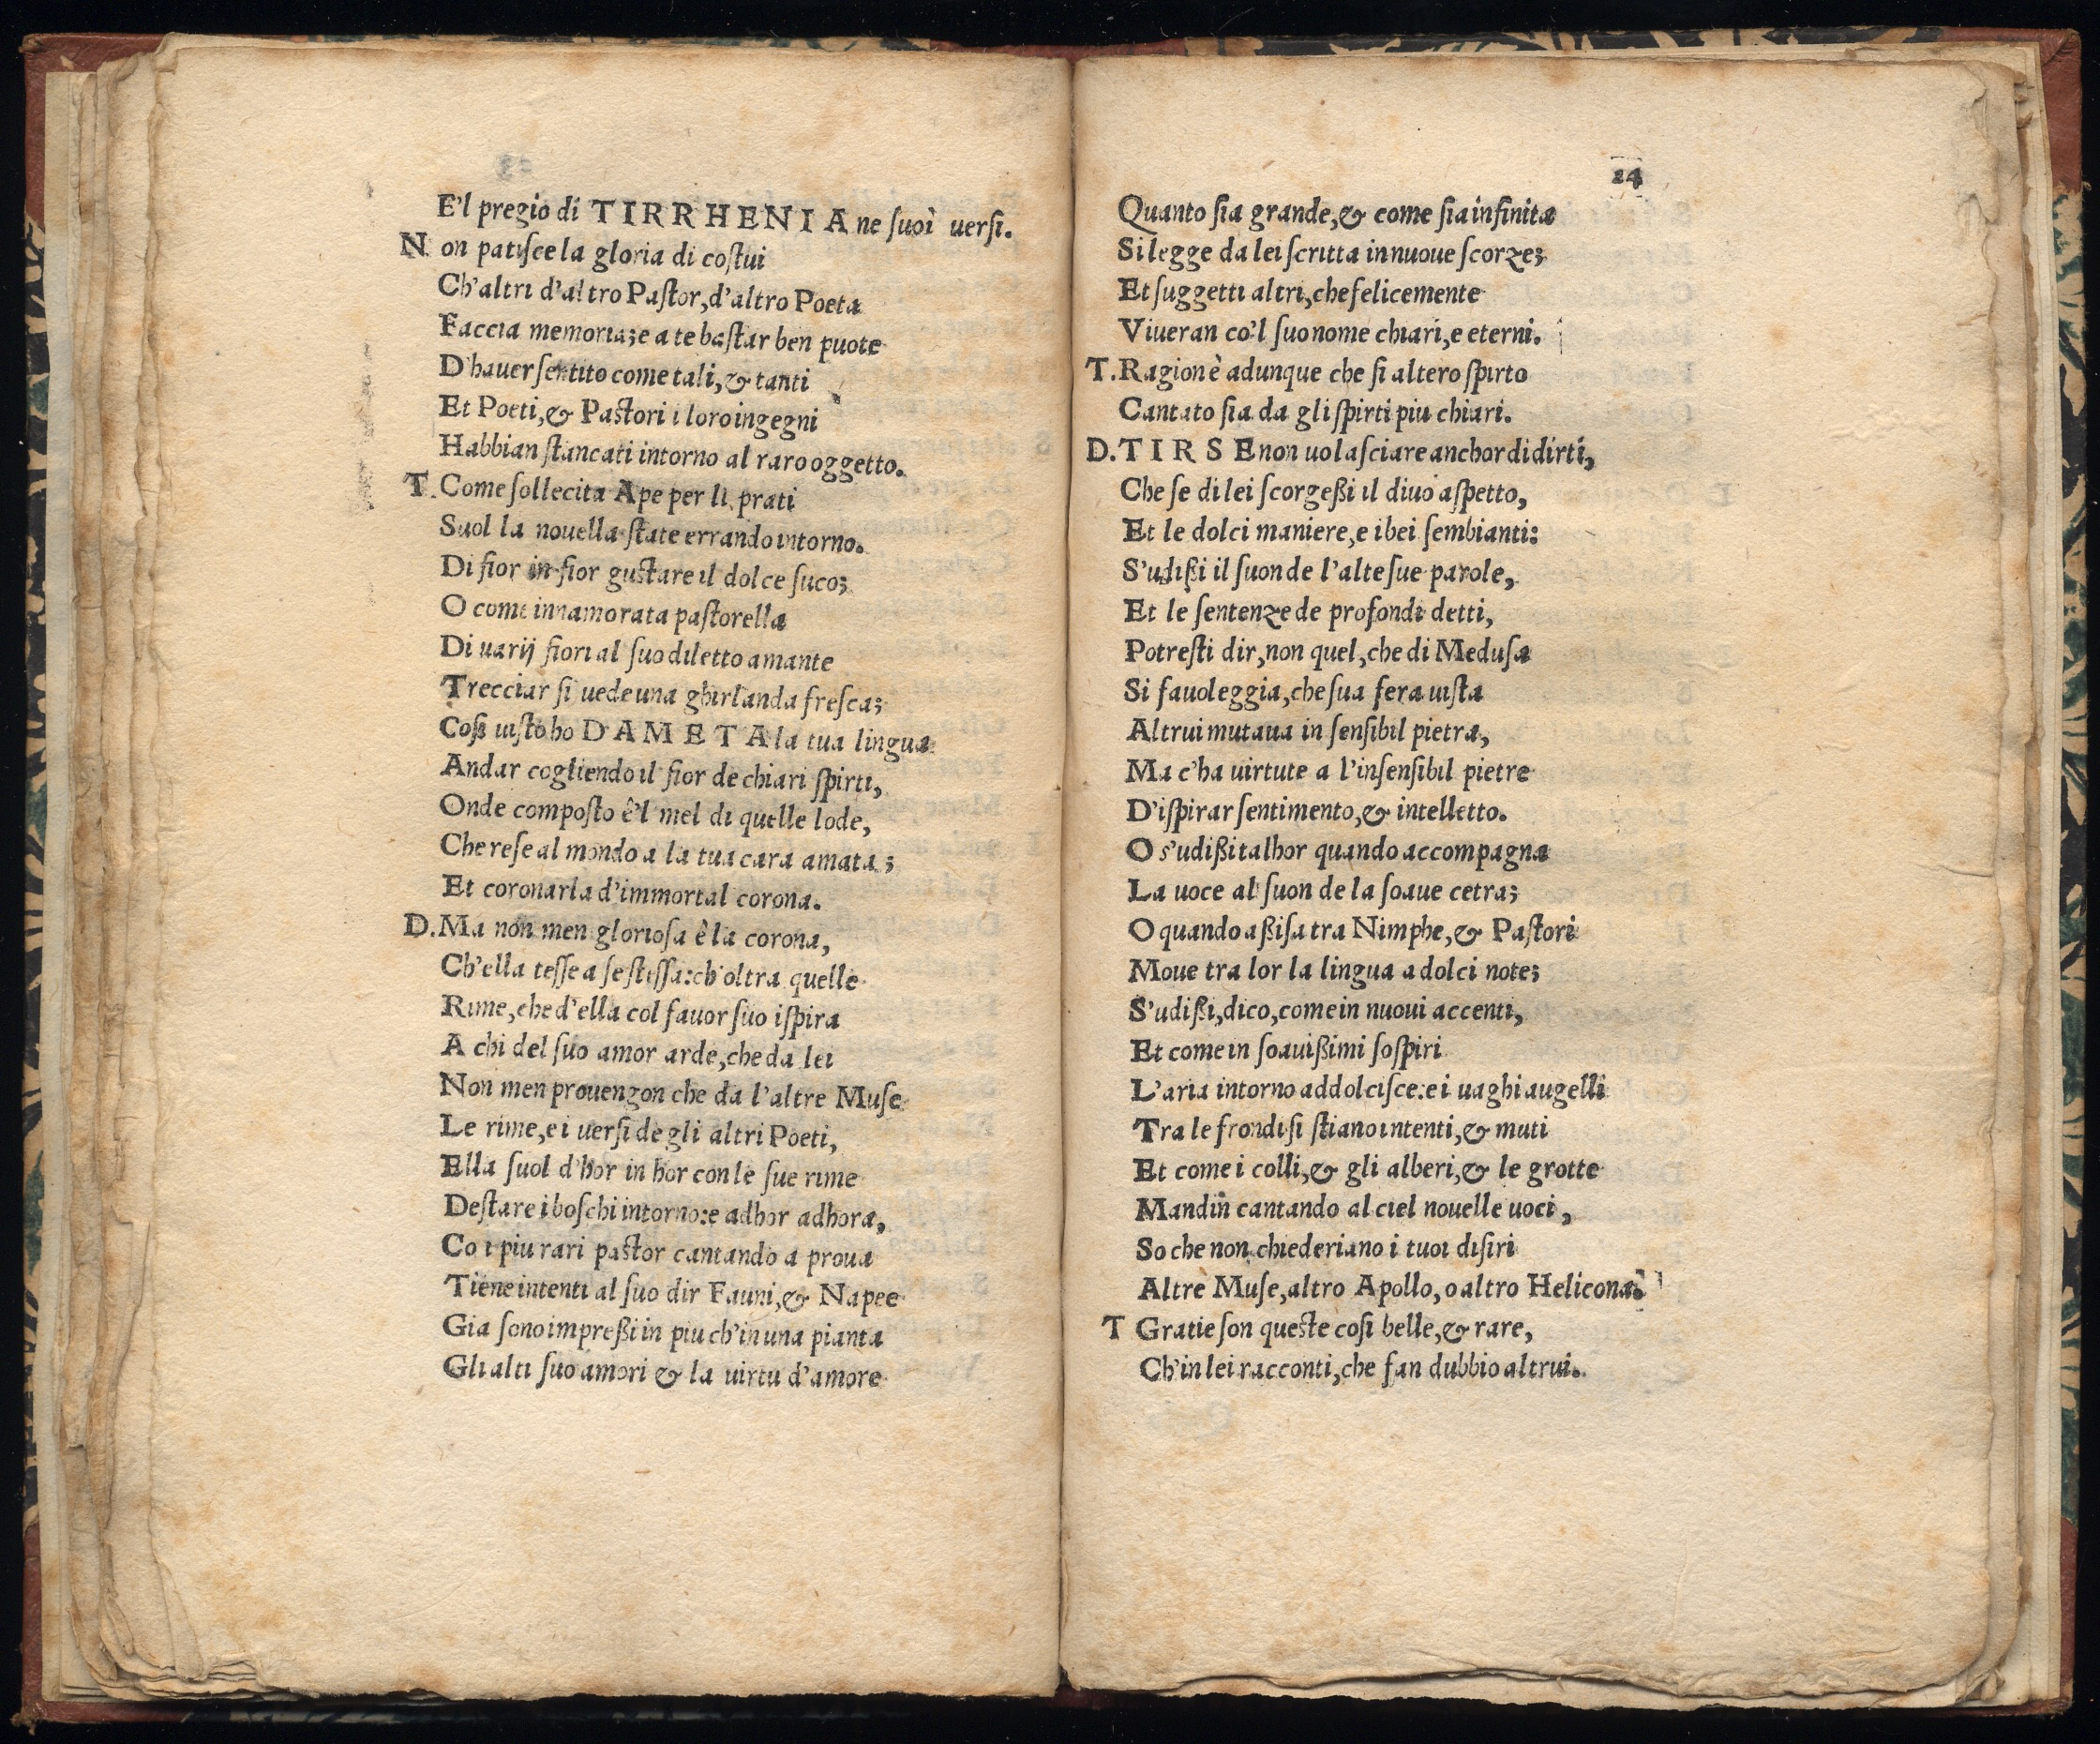 E'l pregio di TIRRHENIA ne ſuoi uerſi.
N on patiſce la gloria di coſtui
Ch'altri d'altro Paſtor, d'altro Poeta
Faccia memoria; e a te baſtar ben puote
D'hauer ſentito come tali, & tanti
Et Poeti, & Paſtori i loro ingegni
Habbian ſtancati intorno al raro oggetto.
T. Come ſollecita Ape per li prati
Suol la nouella ſtate errando intorno.
Di fior in fior guſtare il dolce ſuco;
O come innamorata paſtorella
Di uarij fiori al ſuo diletto amante
Trecciar ſi uede una ghirlanda freſca;
Coſi uiſto ho DAMETA la tua lingua
Andar cogliendo il fior de chiari ſpirti,
Onde compoſto è'l mel di quelle lode,
Che reſe al mondo a la tua cara amata;
Et coronarla d'immortal corona.
D. Ma non men glorioſa è la corona,
Ch'ella teſſe a ſe ſteſſa: ch'oltra quelle
Rime, che d'ella col fauor ſuo iſpira
A chi del ſuo amor arde, che da lei
Non men prouengon che da l'altre Muſe
Le rime, e i uerſi de gli altri Poeti,
Ella ſuol d'hor in hor con le ſue rime
Deſtare i boſchi intorno: e adhor adhora,
Co i piu rari paſtor cantando a proua
Tiene intenti al ſuo dir Fauni, & Napee
Gia ſono impreßi in piu ch'in una pianta
Gli alti ſuo amori & la uirtu d'amore
24
Quanto ſia grande, & come ſia infinita
Si legge da lei ſcritta in nuoue ſcorze;
Et ſuggetti altri, che felicemente
Viueran co'l ſuo nome chiari, e eterni.
T. Ragion è adunque che ſi altero ſpirto
Cantato ſia da gli ſpirti piu chiari.
D. TIRSE non uo laſciare anchor di dirti,
Che ſe di lei ſcorgeßi il diuo aſpetto,
Et le dolci maniere, e i bei ſembianti:
S'udißi il ſuon de l'alte ſue parole,
Et le ſentenze de profondi detti,
Potreſti dir, non quel, che di Meduſa
Si fauoleggia, che ſua fera uiſta
Altrui mutaua in ſenſibil pietra,
Ma c'ha uirtute a l'inſenſibil pietre
D'iſpirar ſentimento, & intelletto.
O s'udißi talhor quando accompagna
La uoce al ſuon de la ſoaue cetra;
O quando aßiſa tra Nimphe, & Paſtori
Moue tra lor la lingua a dolci note;
S'udißi, dico, come in nuoui accenti,
Et come in ſoauißimi ſoſpiri
L'aria intorno addolciſce: e i uaghi augelli
Tra le frondi ſi ſtiano intenti, & muti
Et come i colli, & gli alberi, & le grotte
Mandin cantando al ciel nouelle uoci,
So che non chiederiano i tuoi diſiri
Altre Muſe, altro Apollo, o altro Helicona.
T Gratie ſon queſte coſi belle, & rare,
Ch'in lei racconti, che fan dubbio altrui.